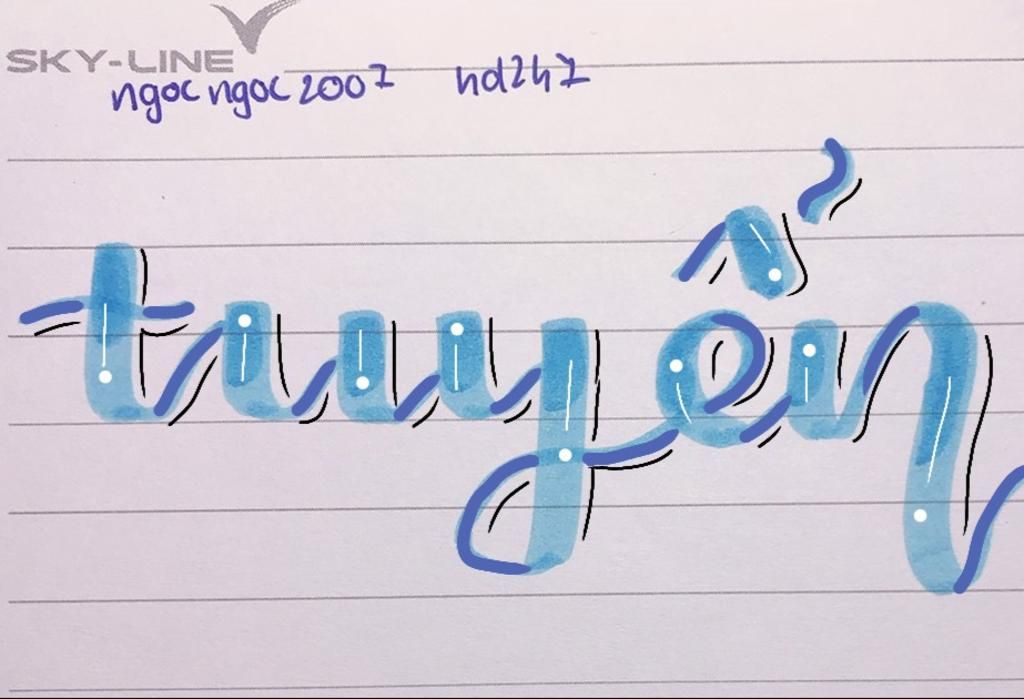 SKY-LINE
ngocngoc2007 hd247
truyển